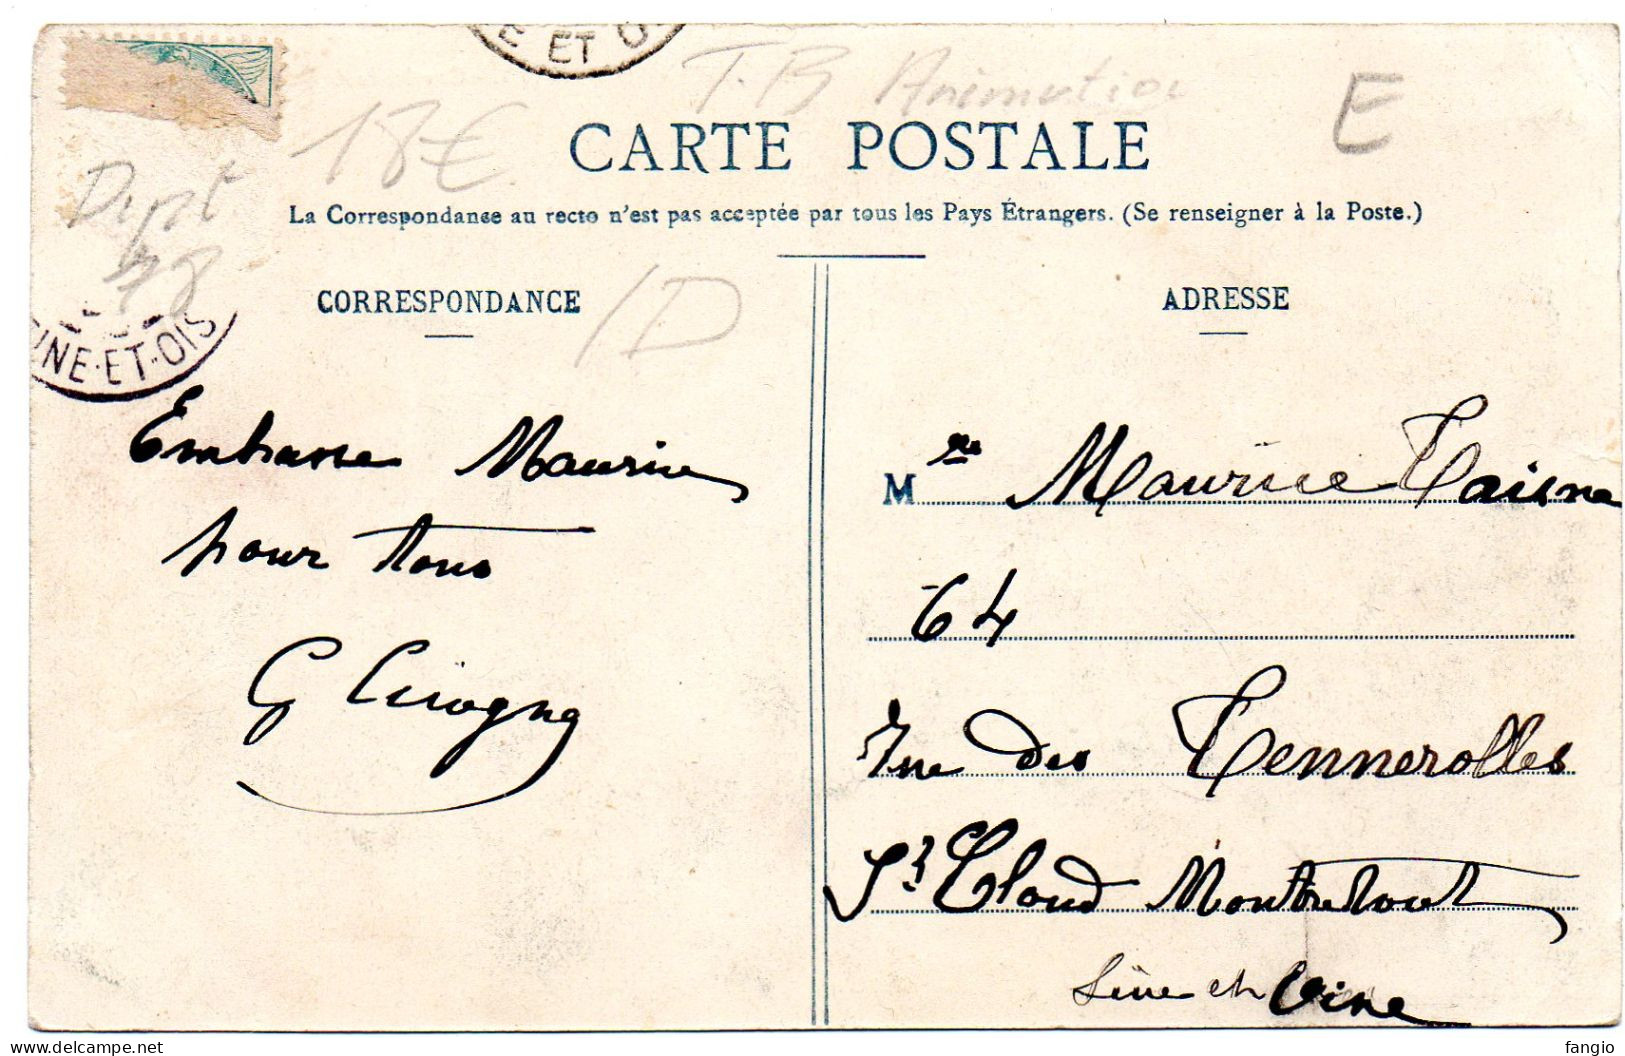 E ET O
T.B Animation
18€
E
CARTE POSTALE
La Correspondance au recto n'est pas acceptée par tous les Pays Étrangers. (Se renseigner à la Poste.)
Dept
78
INE-ET-OIS
/D
CORRESPONDANCE
Embrasse Maurice
pour tous
G
ADRESSE
M re Maurice Taisne
64
rue des Tennerolles
St Cloud Montretout
Seine et Oise
fangio
www.delcampe.net